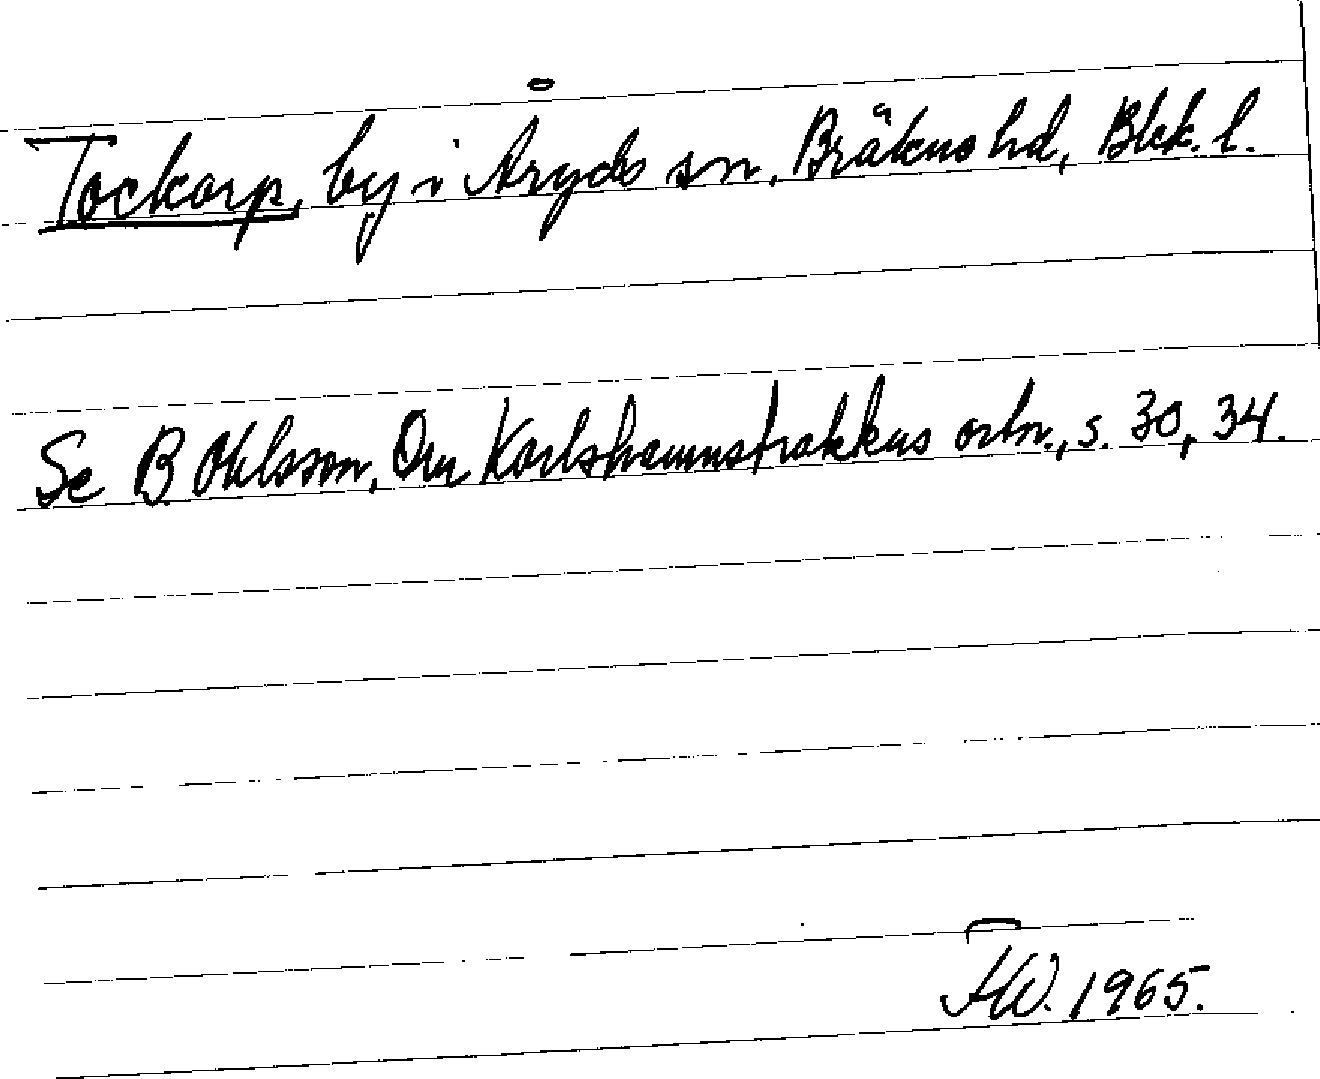 Tockarp, by i Åryds sn, Bräkne hd, Blek. l.
Se B. Ohlsson, Om Karlshamnstraktens ortn., s. 30, 34.
1965.